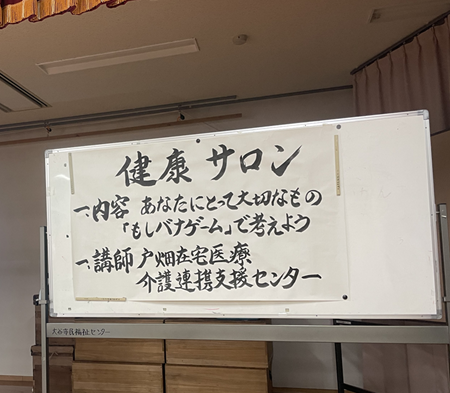 健康サロン
一、内容 あなたにとって大切なもの
「もしバナゲーム」で考えよう
一、講師 戸畑在宅医療
介護連携支援センター
大谷市民福祉センター